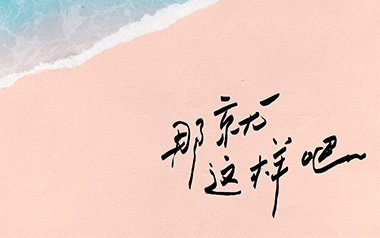 那就
这样吧